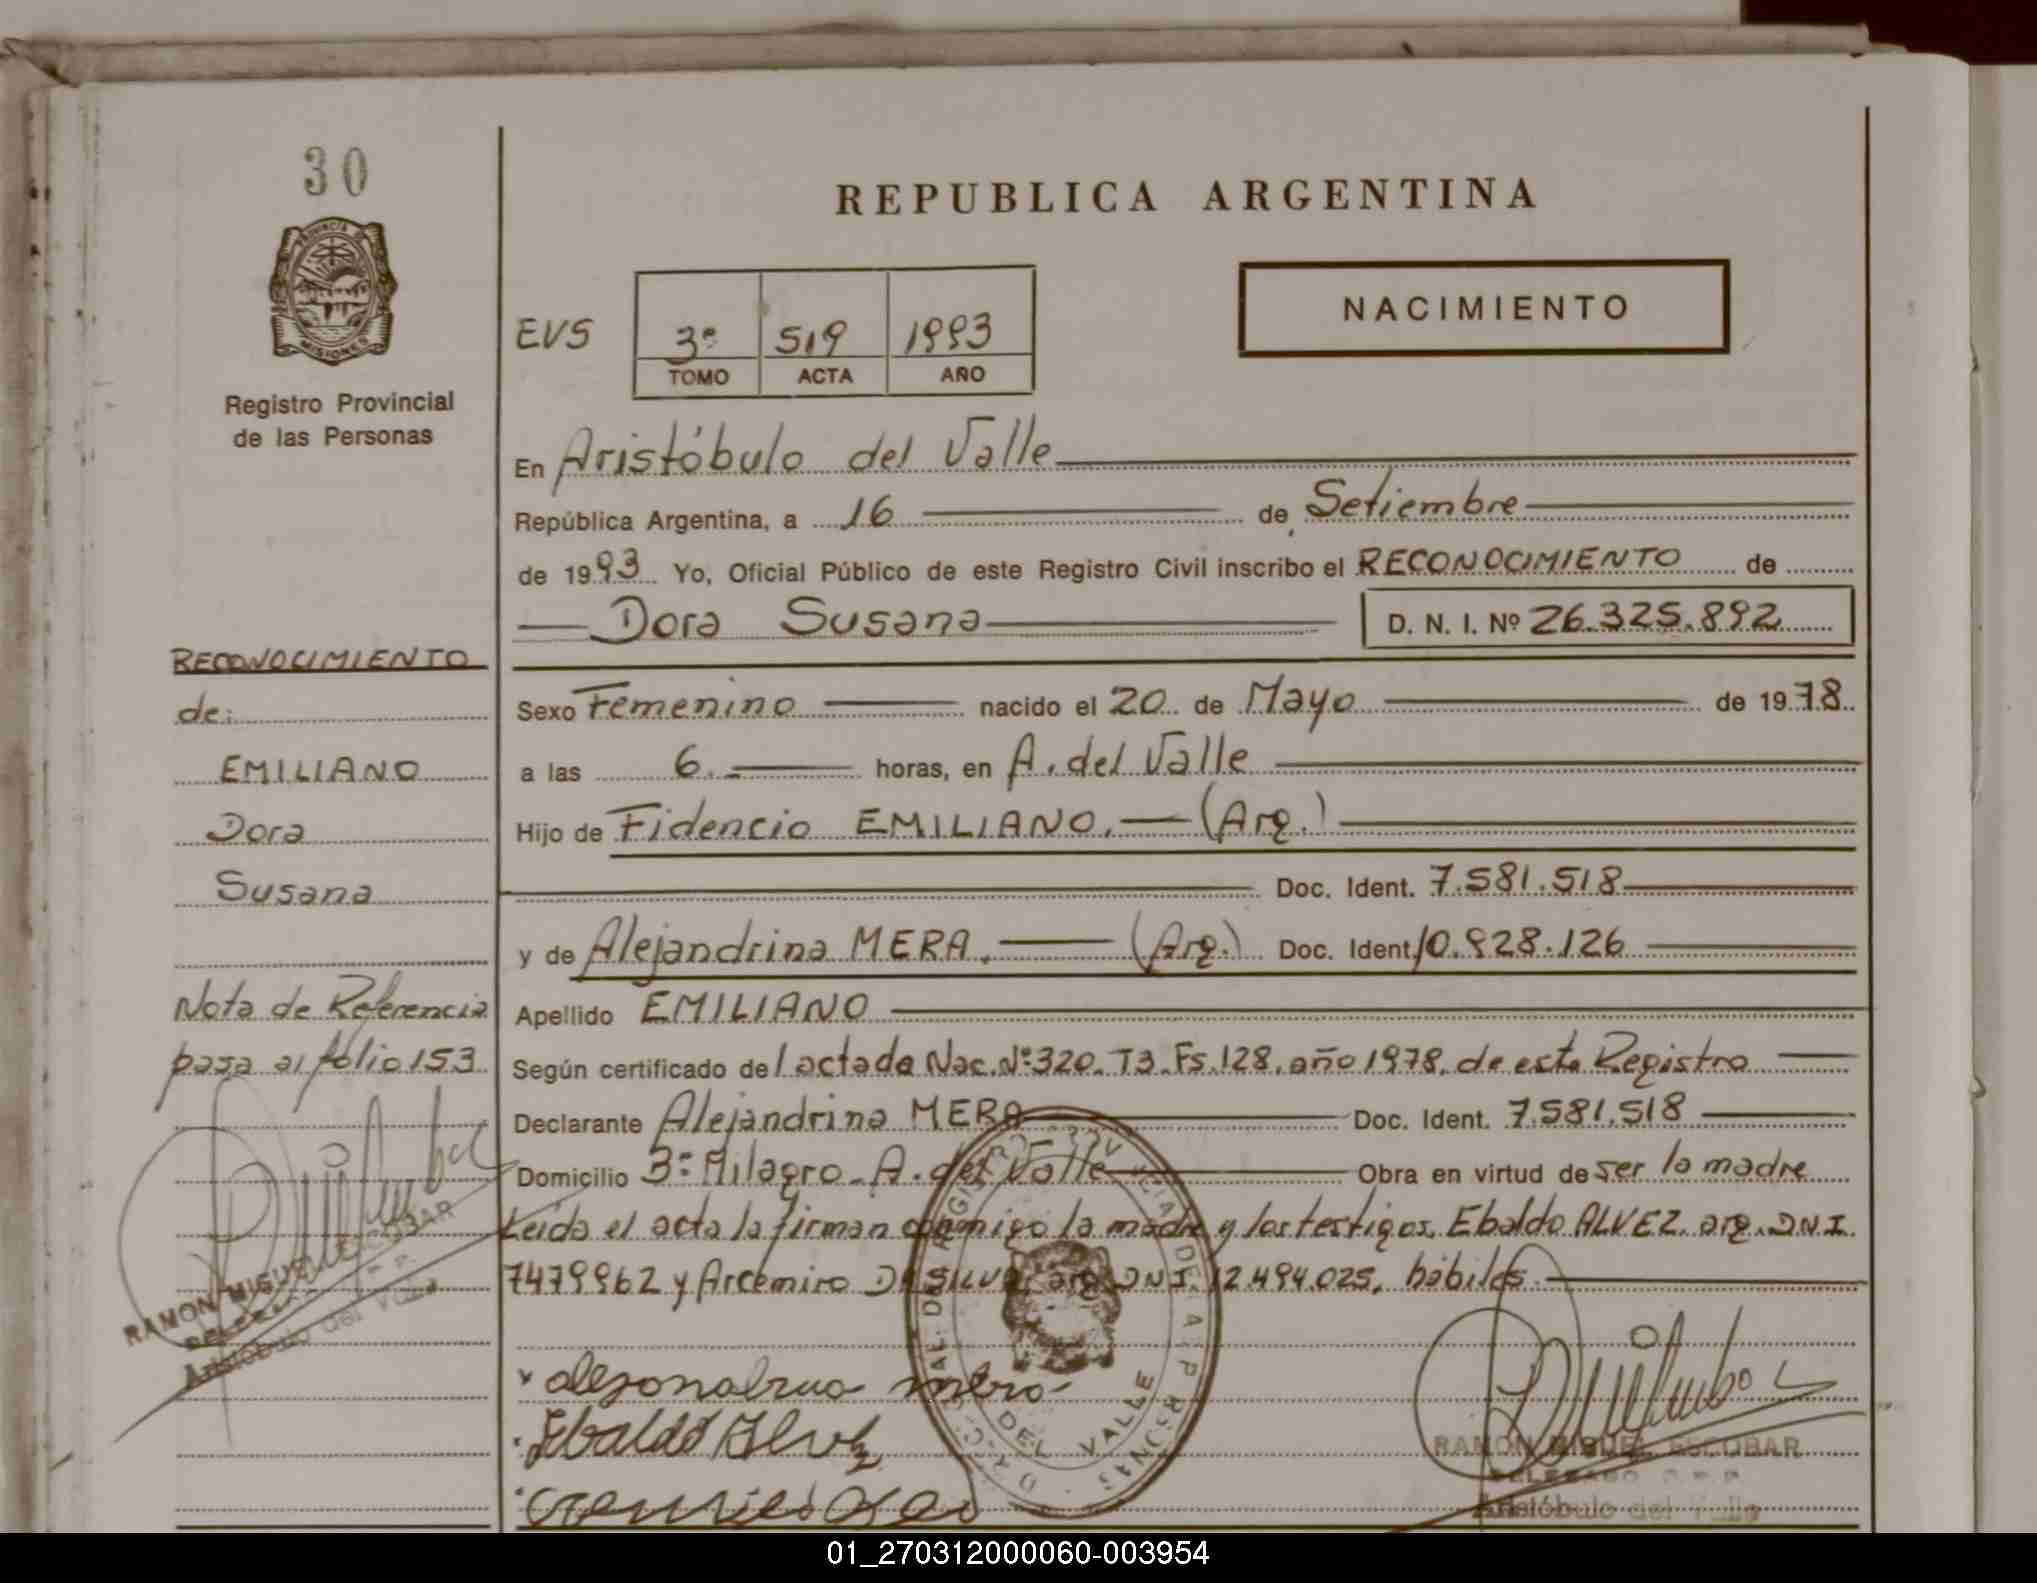 30
PROVINCIA DE
MISIONES
Registro Provincial
de las Personas
REPUBLICA ARGENTINA
NACIMIENTO
EVS
3º 519 1993
TOMO ACTA AÑO
En Aristóbulo del Valle
República Argentina, a 16 de Setiembre
de 1993 Yo, Oficial Público de este Registro Civil inscribo el RECONOCIMIENTO de
Dora Susana D. N. I. Nº 26.325.892
Sexo Femenino nacido el 20 de Mayo de 1978
a las 6.- horas, en A. del Valle
Hijo de Fidencio EMILIANO. (Arg.)
Doc. Ident. 7.581.518
y de Alejandrina MERA. (Arg.) Doc. Ident. 10.928.126
Apellido EMILIANO
Según certificado del acta de Nac. Nº 320. T3. Fs. 128. año 1978. de este Registro
Declarante Alejandrina MERA Doc. Ident. 7.581.518
Domicilio 3º Milagro. A. del Valle Obra en virtud de ser la madre
Leida el acta la firman conmigo la madre y los testigos. Ebaldo ALVEZ. arg. DNI.
7479962 y Arcemiro DA SILVA arg. DNI. 12.494.025. hábiles.
RECONOCIMIENTO
de:
EMILIANO
Dora
Susana
Nota de Referencia
pasa al folio 153
RAMON MIGUEL ESCOBAR
Aristóbulo del Valle
DEL VALLE
Ebaldo Alvez
RAMON MIGUEL ESCOBAR
DELEGADO R. P. P.
Aristóbulo del Valle
01_270312000060-003954